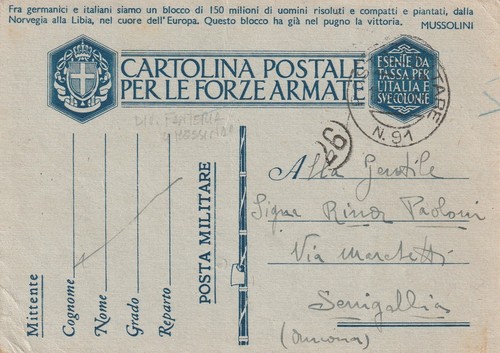 Fra germanici e italiani siamo un blocco di 150 milioni di uomini risoluti e compatti e piantati, dalla
Norvegia alla Libia, nel cuore dell'Europa. Questo blocco ha già nel pugno la vittoria.
MUSSOLINI
CARTOLINA POSTALE
PER LE FORZE ARMATE
ESENTE DA
TASSA PER
L'ITALIA E
SVE COLONIE
N. 91
DIV. FANTERIA
MESSINA
26
Mittente
Cognome
Nome
Grado
Reparto
POSTA MILITARE
Alla Gentile
Rina Paoloni
Via Marchetti
Senigallia
(Ancona)